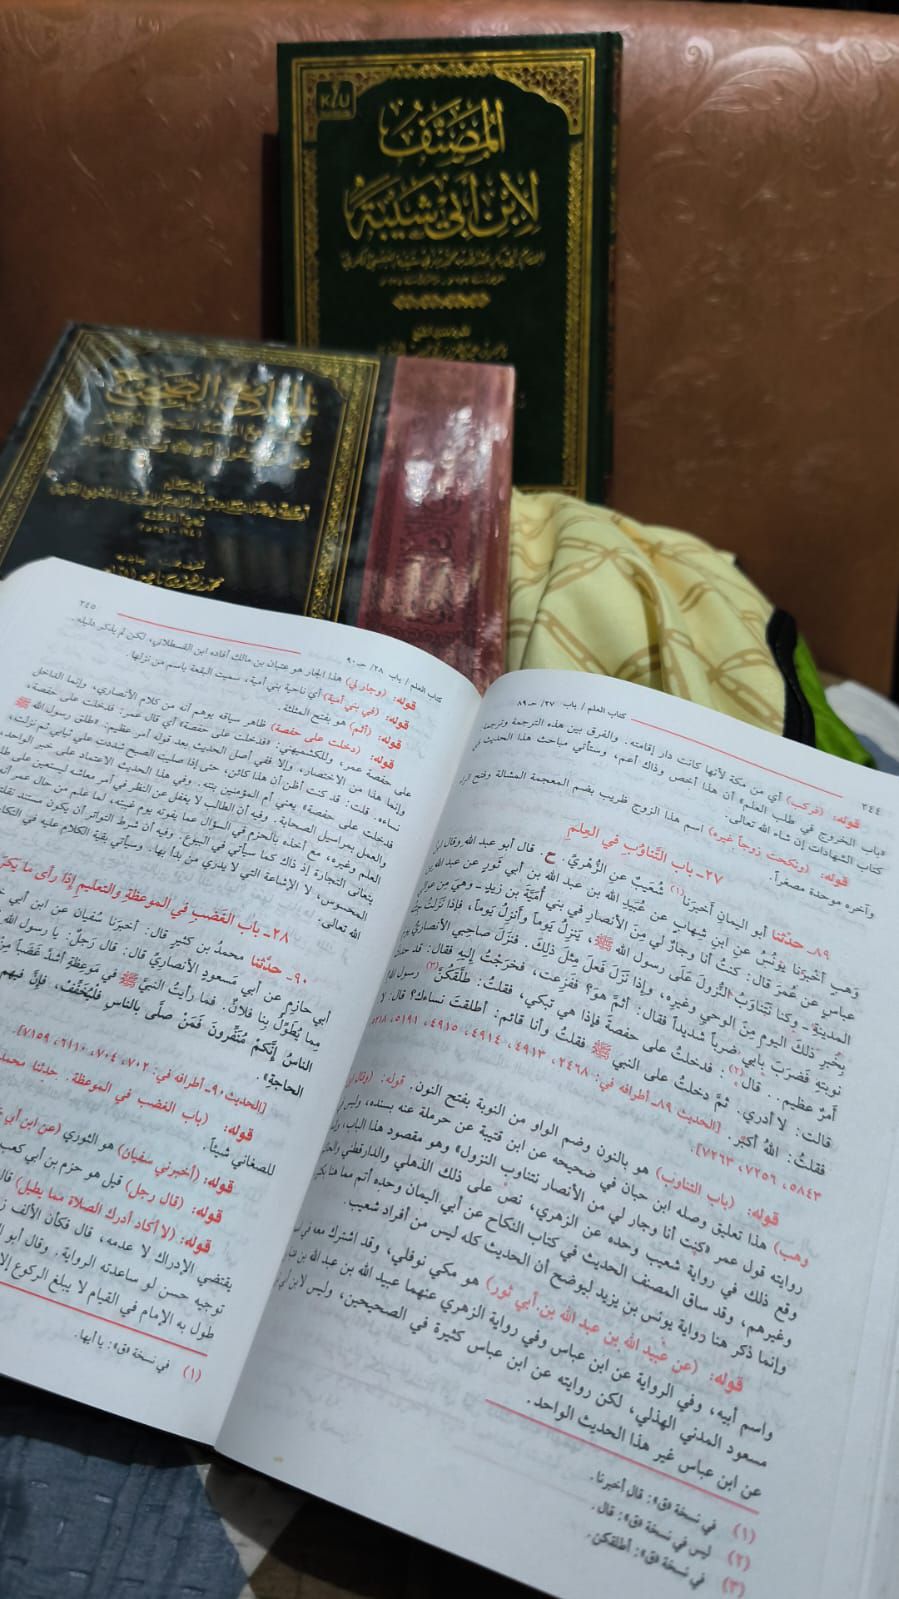 K/U
المصنف
لابن أبي شيبة
كتاب العلم / باب ٢٧/ ح ٨٩
٢٤٤
قوله: (فركب) أي من مكة لأنها كانت دار إقامته. والفرق بين هذه الترجمة وترجمة
«باب الخروج في طلب العلم» أن هذا أخص وذاك أعم، وستأتي مباحث هذا الحديث في
كتاب الشهادات إن شاء الله تعالى.
قوله: (ونكحت زوجاً غيره) اسم هذا الزوج ظريب بضم المعجمة المشالة وفتح الراء
وآخره موحدة مصغراً.
٢٧- باب التَّناوُبِ في العِلمِ
٨٩- حدَّثنا أبو اليمانِ أخبرَنا(١) شُعيبٌ عنِ الزُّهريِّ. ح. قال أبو عبد الله وقال ابنُ
وَهبٍ أخبرَنا يونُسُ عنِ ابنِ شهابٍ عن عُبَيدِ الله بنِ عبدِ الله بنِ أبي ثَورٍ عن عبد الله بن
عباسٍ عن عُمرَ قال: كنتُ أنا وجارٌ لي مِنَ الأنصارِ في بني أُمَيَّةَ بنِ زيدٍ - وهيَ مِن عوالي
المدينةِ - وكنا نَتناوَبُ النُّزولَ عَلَى رسولِ الله ﷺ، يَنزِلُ يوماً وأنزِلُ يَوماً، فإذا نَزَلتُ جئتُهُ
بِخَبَرِ ذلكَ اليومِ مِنَ الوَحيِ وغيرِهِ، وإذا نَزَلَ فَعلَ مِثلَ ذلكَ. فنزَلَ صاحِبي الأنصاريُّ يومَ
نَوبتِهِ فضَرَبَ بابي ضَرباً شديداً فقال: أثَمَّ هو؟ ففَزِعتُ، فخرَجتُ إليهِ فقال: قد حدثَ
أمرٌ عظيم.. قال(٢): فدخلتُ على حفصةَ فإذا هي تبكي، فقلتُ: طلَّقَكُنَّ(٣) رسول الله
قالت: لا أدري. ثمَّ دخلتُ على النبي ﷺ فقلتُ وأنا قائم: أطلقتَ نساءك؟ قال: لا
فقلتُ: اللهُ أكبَر. [الحديث ٨٩- أطرافه في: ٢٤٦٨، ٤٩١٣، ٤٩١٤، ٤٩١٥، ٥١٩١، ٥٢١٨
٥٨٤٣، ٧٢٥٦، ٧٢٦٣].
قوله: (باب التناوب) هو بالنون وضم الواو من النوبة بفتح النون. قوله: (وقال ابن
وهب) هذا تعليق وصله ابن حبان في صحيحه عن ابن قتيبة عن حرملة عنه بسنده، وليس في
روايته قول عمر «كنت أنا وجار لي من الأنصار نتناوب النزول» وهو مقصود هذا الباب، وإنما
وقع ذلك في رواية شعيب وحده عن الزهري، نص على ذلك الذهلي والدارقطني والحاكم
وغيرهم، وقد ساق المصنف الحديث في كتاب النكاح عن أبي اليمان وحده أتم مما هنا بكثير
وإنما ذكر هنا رواية يونس بن يزيد ليوضح أن الحديث كله ليس من أفراد شعيب.
قوله: (عن عبيد الله بن عبد الله بن أبي ثور) هو مكي نوفلي، وقد اشترك معه في اسمه
واسم أبيه، وفي الرواية عن ابن عباس وفي رواية الزهري عنهما عبيد الله بن عبد الله بن
مسعود المدني الهذلي، لكن روايته عن ابن عباس كثيرة في الصحيحين، وليس لابن أبي
عن ابن عباس غير هذا الحديث الواحد.
(١) في نسخة «ق»: قال أخبرنا.
(٢) ليس في نسخة «ق»: قال.
(٣) في نسخة «ق»: أطلقكن.
كتاب العلم / باب ٢٨/ ح ٩٠
٢٤٥
قوله: (وجار لي) هذا الجار هو عتبان بن مالك أفاده ابن القسطلاني، لكن لم يذكر دليله.
قوله: (في بني أمية) أي ناحية بني أمية، سميت البقعة باسم من نزلها.
قوله: (أثم) هو بفتح المثلثة.
قوله: (دخلت على حفصة) ظاهر سياقه يوهم أنه من كلام الأنصاري، وإنما الداخل
على حفصة عمر، وللكشميهني: «فدخلت على حفصة» أي قال عمر: فدخلت على حفصة،
وإنما هذا من الاختصار، وإلا ففي أصل الحديث بعد قوله أمر عظيم: «طلق رسول الله ﷺ
نساءه. قلت: قد كنت أظن أن هذا كائن، حتى إذا صليت الصبح شددت علي ثيابي ثم نزلت،
فدخلت على حفصة» يعني أم المؤمنين بنته. وفي هذا الحديث الاعتماد على خبر الواحد،
والعمل بمراسيل الصحابة. وفيه أن الطالب لا يغفل عن النظر في أمر معاشه ليستعين على
العلم وغيره، مع أخذه بالحزم في السؤال عما يفوته يوم غيبته، لما علم من حال عمر أنه
يتعانى التجارة إذ ذاك كما سيأتي في البيوع. وفيه أن شرط التواتر أن يكون مستند نقلته
المحسوس، لا الإشاعة التي لا يدرى من بدأ بها. وسيأتي بقية الكلام عليه في النكاح
الله تعالى.
٢٨- باب الغَضَبِ في الموعظةِ والتعليمِ إذا رأى ما يكرَه
٩٠- حدَّثنا محمدُ بن كثيرٍ قال: أخبرَنا سُفيان عن ابن أبي
أبي حازمٍ عن أبي مَسعودٍ الأنصاريِّ قال: قال رَجلٌ: يا رسولَ الله
مِما يُطوِّلُ بِنا فلانٌ. فما رأيتُ النبيَّ ﷺ في مَوعظةٍ أشدَّ غَضَباً مِن
الناسُ إنَّكُمْ مُنَفِّرون فَمَنْ صلَّى بالناسِ فليُخَفِّف، فإنَّ فيهم
الحاجةِ».
[الحديث ٩٠- أطرافه في: ٧٠٢، ٧٠٤، ٦١١٠، ٧١٥٩].
قوله: (باب الغضب في الموعظة. حدثنا محمد
للصغاني شيئاً.
قوله: (أخبرني سفيان) هو الثوري (عن ابن أبي
قوله: (قال رجل) قيل هو حزم بن أبي كعب
قوله: (لا أكاد أدرك الصلاة مما يطيل) قال
يقتضي الإدراك لا عدمه، قال فكأن الألف
توجيه حسن لو ساعدته الرواية. وقال أبو
طول به الإمام في القيام لا يبلغ الركوع إلا
(١) في نسخة «ق»: يا أيها.